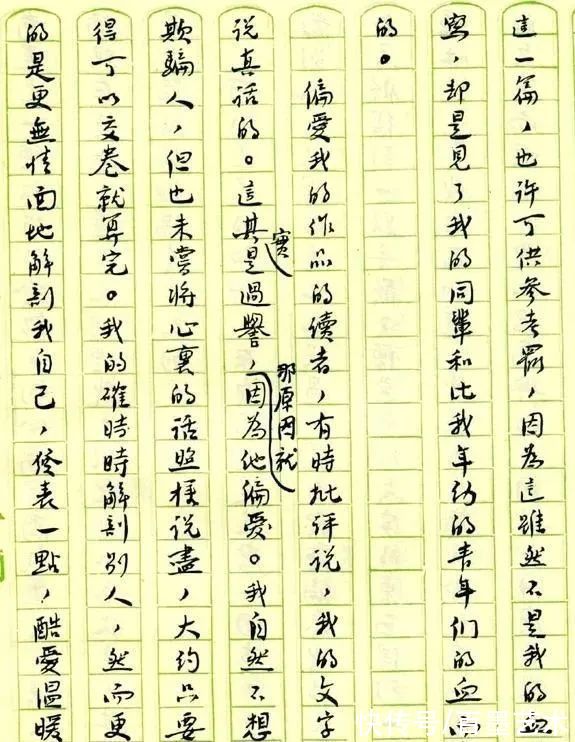 這一篇，也許可供參考罷，因為這雖然不是我的血
寫，却是見了我的同輩和比我年幼的青年們的血
的。
偏愛我的作品的讀者，有時批評說，我的文字
說真話的。這其實是過譽，那原因就因為他偏愛。我自然不想
欺騙人，但也未嘗將心裏的話照樣說盡，大約只要
得可以交卷就算完。我的確時時解剖別人，然而更
的是更無情面地解剖我自己，發表一點，酷愛溫暖
快传号/